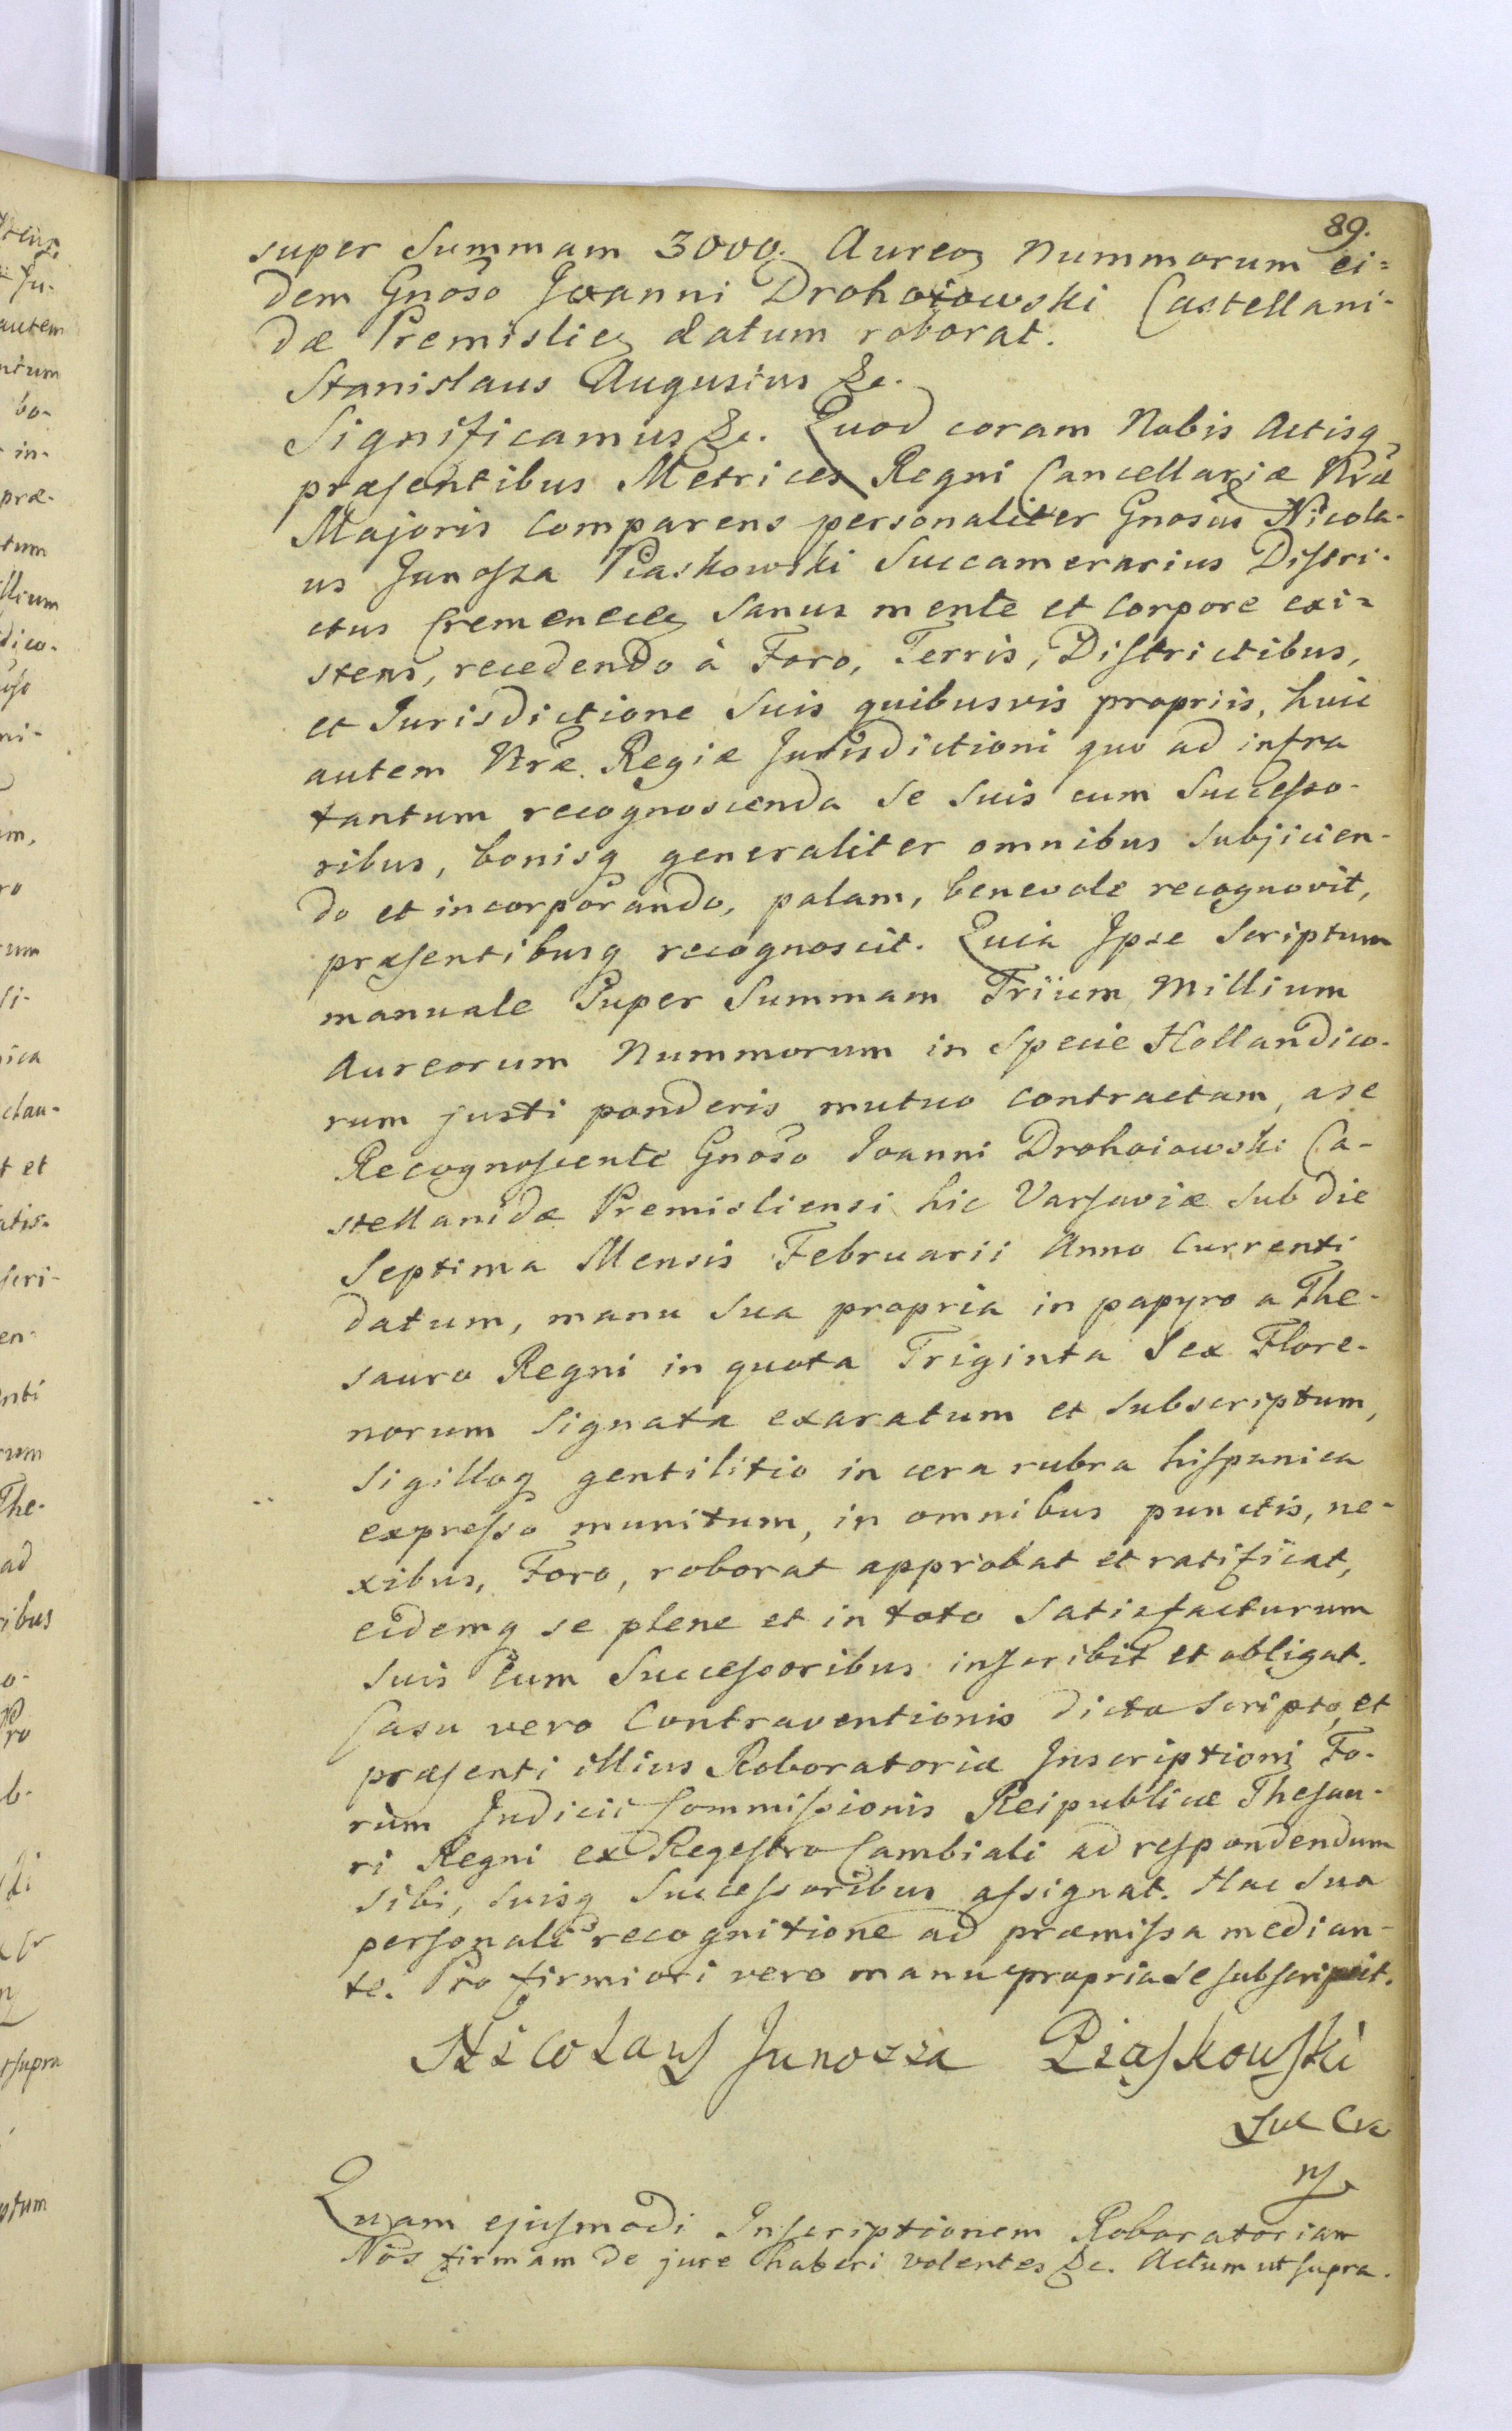 89.
super Summam 3000. Aureoꝝ Nummorum ei=
dem Gnoso Joanni Drohoiowski Castellani-
dæ Premislieꝝ datum roborat.
Stanislaus Augustus &c.
Significamus &c. Quod coram Nobis Actisq
præsentibus Metrices Regni Cancellariæ Nræ
Majoris Comparens personaliter Gnosus Nicola-
us Junosza Piaskowski Succamerarius Distri-
ctus Cremeneceꝝ Sanus mente et Corpore exi=
stens, recedendo à Foro, Terris, Districtibus,
et Jurisdictione Suis quibusvis propriis, huic
autem Nræ Regiæ Jurisdictioni quo ad infra
tantum recognoscenda Se Suis cum Successo-
ribus, bonisq generaliter omnibus Subjicien-
do et incorporando, palam, benevole recognovit,
præsentibusq recognoscit. Quia Ipse Scriptum
manuale Super Summam Trium Millium
Aureorum Nummorum in Specie Hollandico-
rum justi ponderis mutuo contractam, a se
Recognoscente Gnoso Joanni Drohoiowski Ca-
stellanidæ Premisliensi hic Varsaviæ Sub die
Septima Mensis Februarii Anno Currenti
datum, manu Sua propria in papyro a The-
sauro Regni in quota Triginta Sex Flore-
norum Signata exaratum et Subscriptum,
Sigilloq gentilitio in cera rubra hispanica
expresso munitum, in omnibus punctis, ne-
xibus, Foro, roborat approbat et ratificat,
eidemq se plene et in toto Satisfacturum
Suis cum Successoribus inscribit et obligat.
Casu vero Contraventionis dicto Scripto, et
præsenti illius Roboratoriæ Inscriptioni Fo-
rum Judicii Commissionis Reipublicæ Thesau-
ri Regni ex Regestro Cambiali ad respondendum
Sibi, Suisq Successoribus assignat. Hac Sua
personali recognitione ad præmissa median-
te. Pro firmiori vero manu propria Se subscripsit.
Nicolaus Junosza Piaskowski
Suc Cr
mp
Quam ejusmodi Inscriptionem Roboratoriam
Nos firmam de jure haberi volentes &c. Actum ut supra.